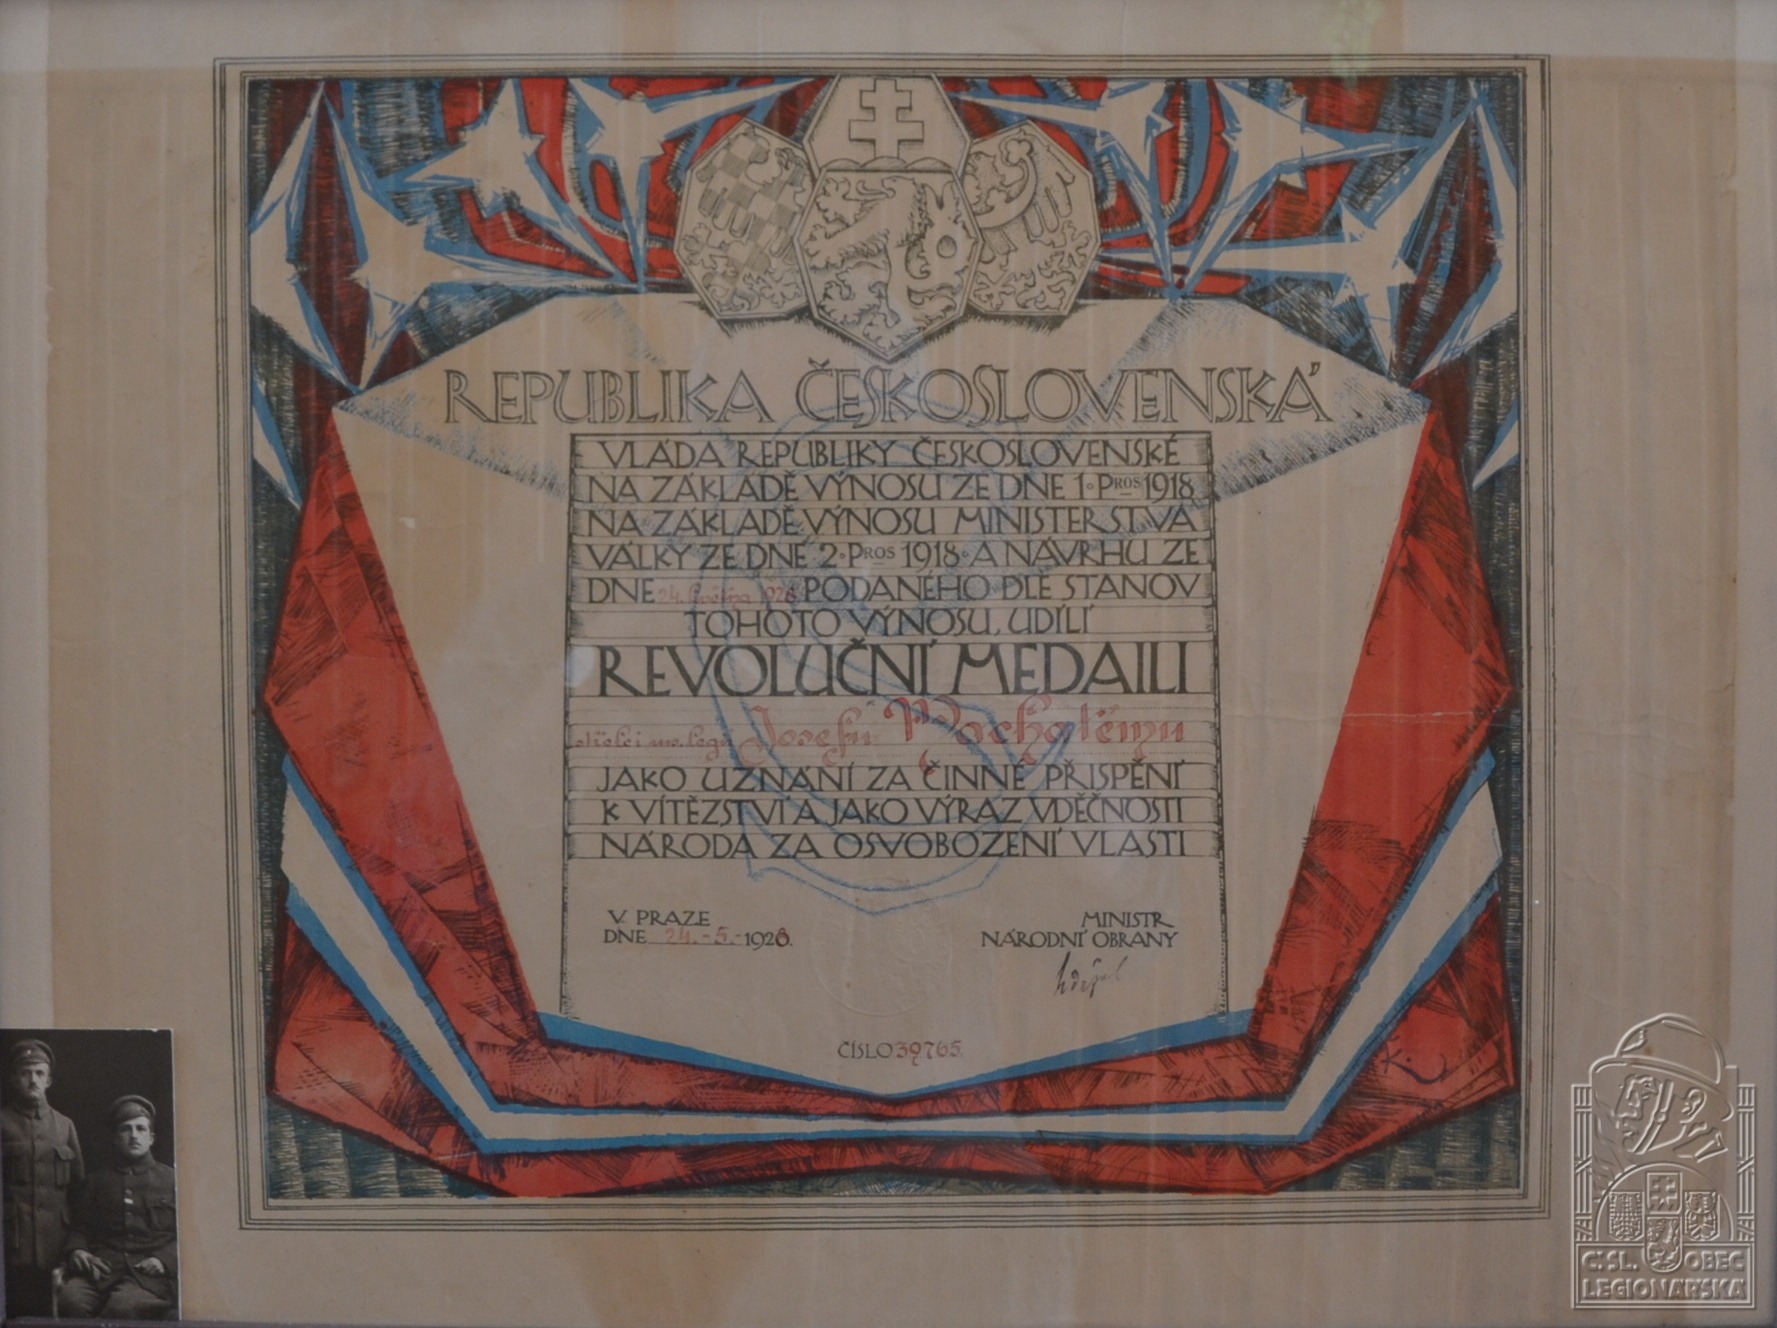 REPUBLIKA ČESKOSLOVENSKÁ
VLÁDA REPUBLIKY ČESKOSLOVENSKÉ
NA ZÁKLADĚ VÝNOSU ZE DNE 1. PROS 1918
NA ZÁKLADĚ VÝNOSU MINISTERSTVA
VÁLKY ZE DNE 2. PROS 1918. A NÁVRHU ZE
DNE 24. května 1928 PODANÉHO DLE STANOV
TOHOTO VÝNOSU, UDÍLÍ
REVOLUČNÍ MEDAILI
Josefu Pochatému
JAKO UZNÁNÍ ZA ČINNÉ PŘISPĚNÍ
K VÍTĚZSTVÍ A JAKO VÝRAZ VDĚČNOSTI
NÁRODA ZA OSVOBOZENÍ VLASTI
V PRAZE
DNE 24.-5.-1928.
MINISTR
NÁRODNÍ OBRANY
ČÍSLO 39765.
Č.SL. OBEC
LEGIONÁŘSKÁ